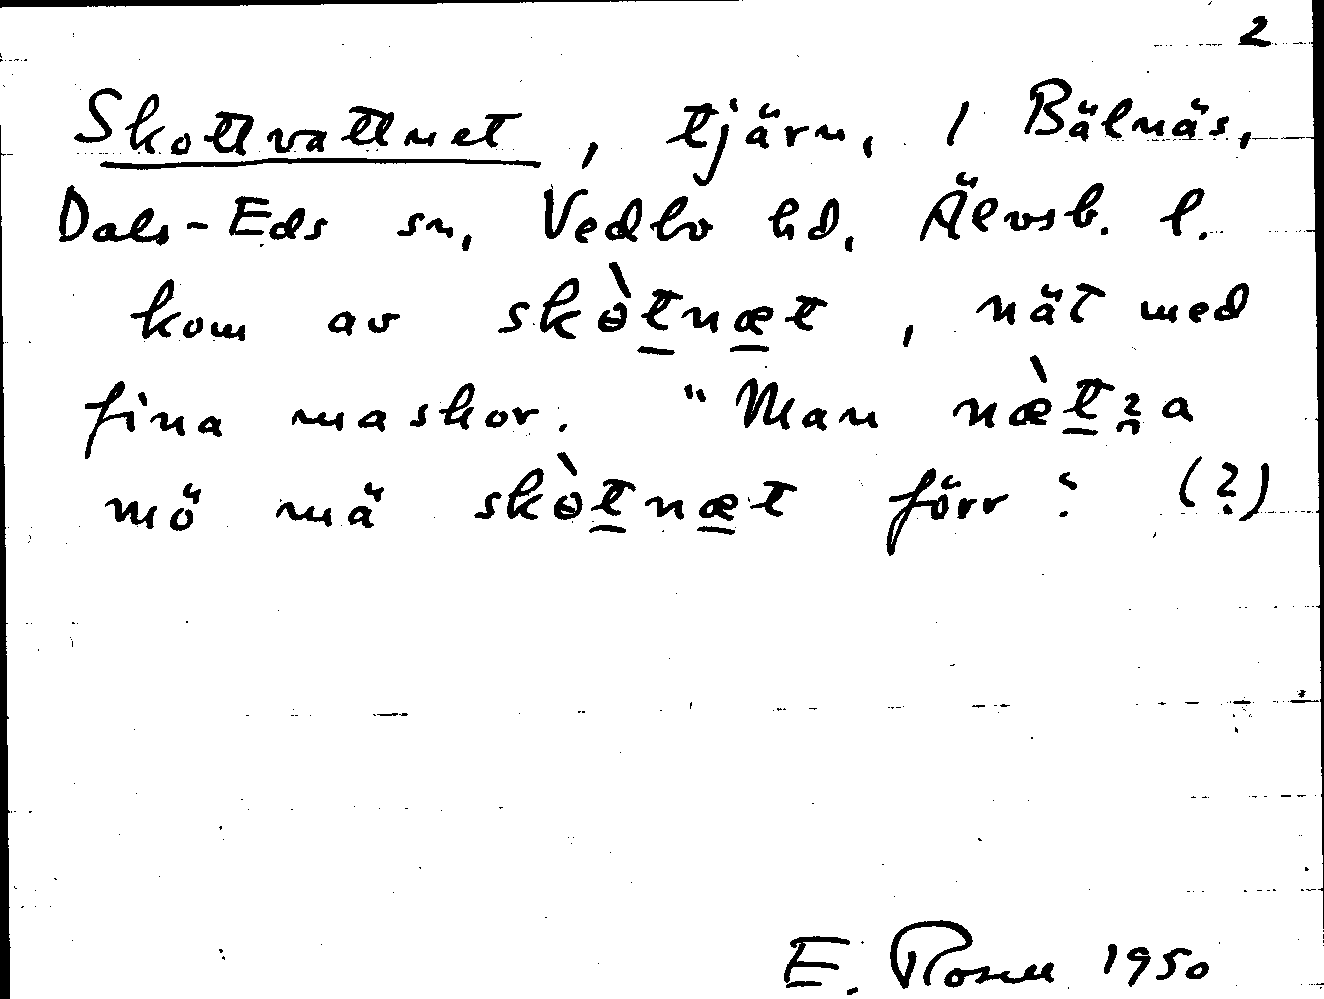 2
Skottvattnet, tjärn, 1 Bälnäs,
Dals-Eds sn, Vedbo hd, Älvsb. l.
kom av skɵ̀tnæt, nät med
fina maskor. "Man næ̀tꝛ̥a
mö mä skɵ̀tnæt förr". (?)
E. Rosell 1950